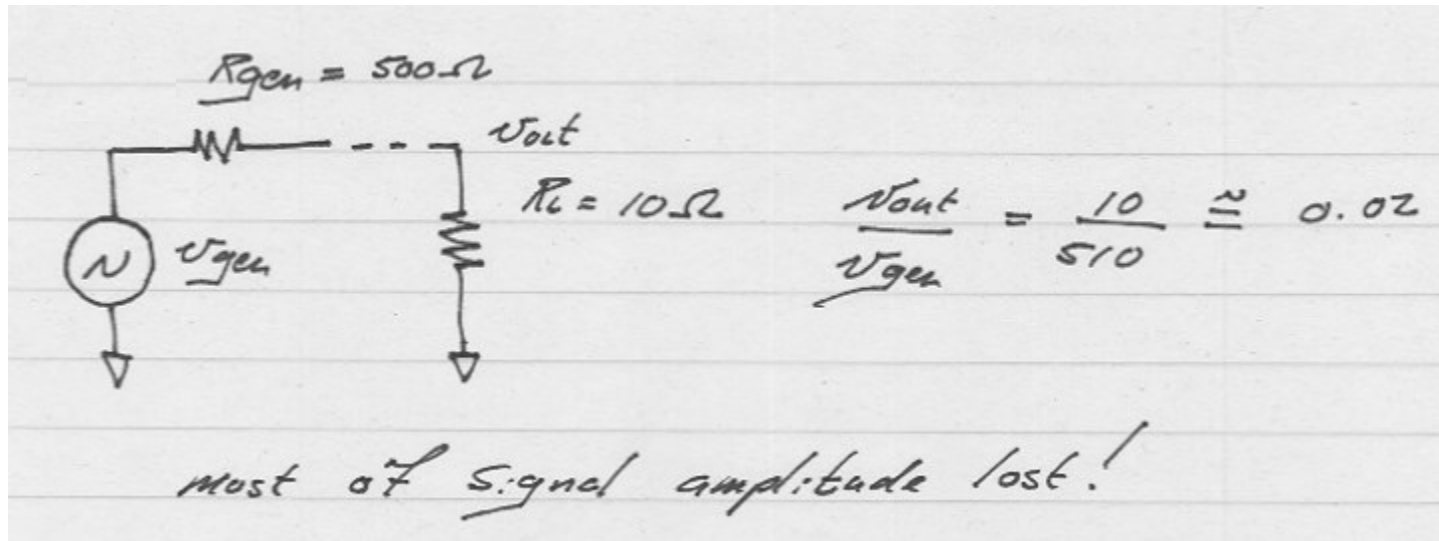 Rgen = 500Ω
vout
RL = 10Ω
vout / vgen = 10 / 510 ≅ 0.02
vgen
most of signal amplitude lost!